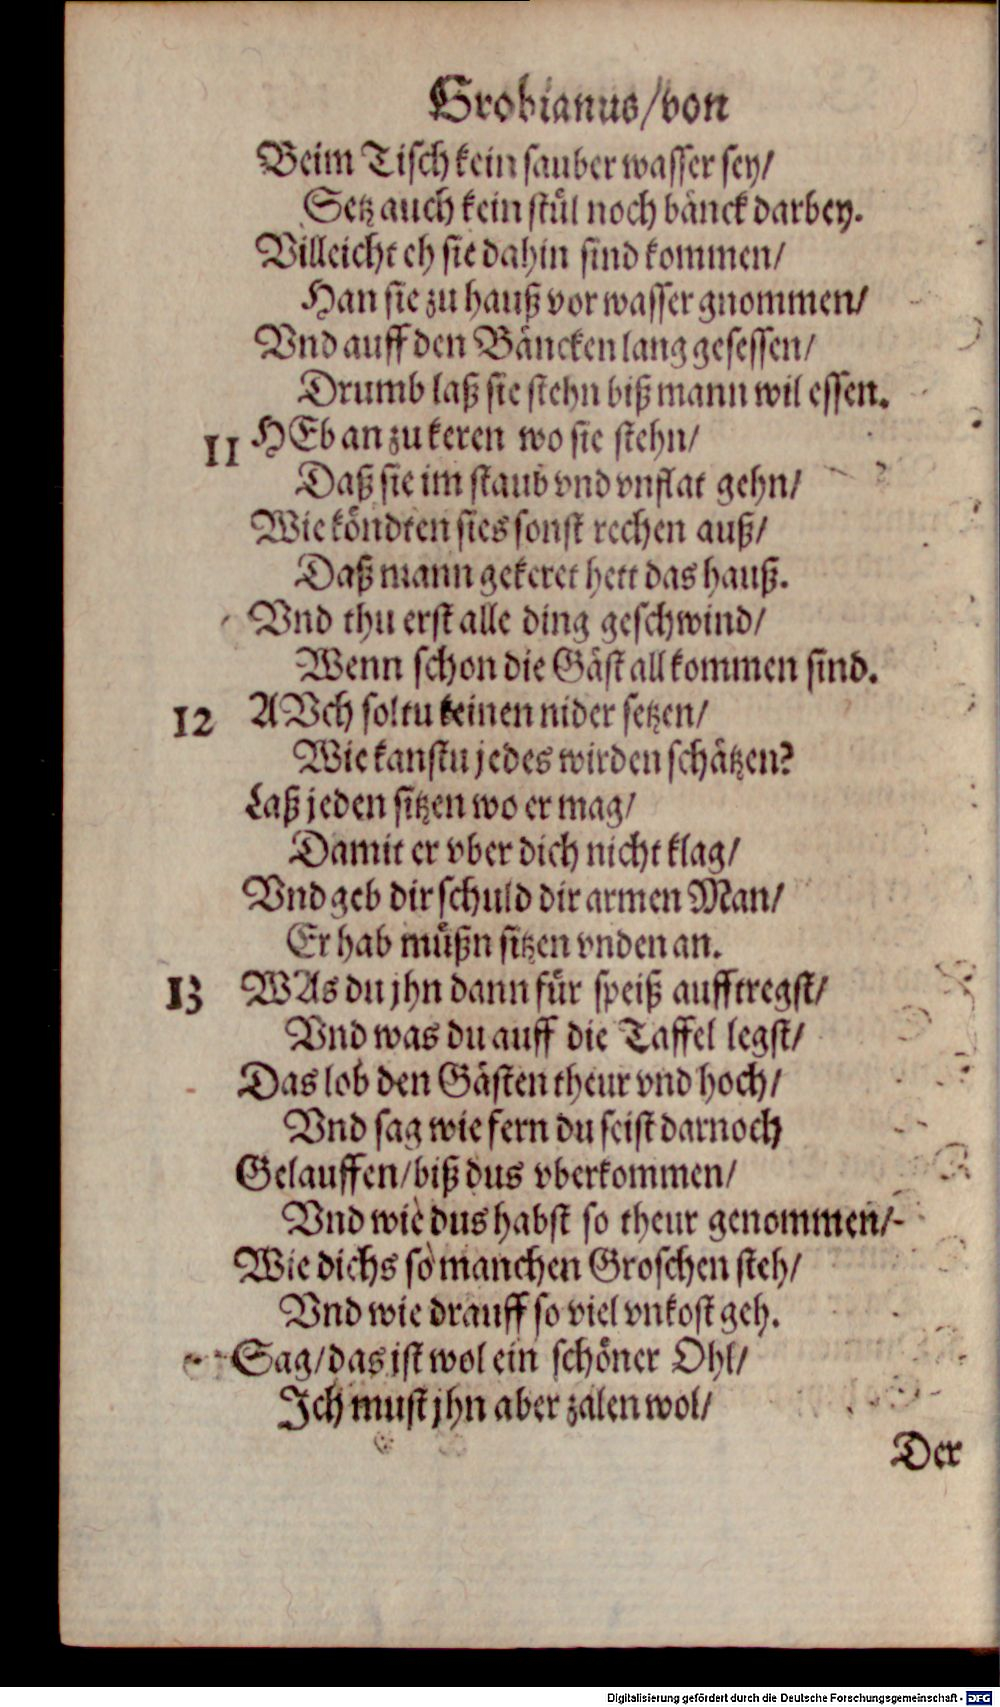 Grobianus/von
Beim Tisch kein sauber wasser sey/
Setz auch kein stůl noch bänck darbey.
Villeicht eh sie dahin sind kommen/
Han sie zu hauß vor wasser gnommen/
Vnd auff den Bäncken lang gesessen/
Drumb laß sie stehn biß mann wil essen.
11 HEb an zu keren wo sie stehn/
Daß sie im staub vnd vnflat gehn/
Wie köndten sies sonst rechen auß/
Daß mann gekeret hett das hauß.
Vnd thu erst alle ding geschwind/
Wenn schon die Gäst all kommen sind.
12 AVch soltu keinen nider setzen/
Wie kanstu jedes wirden schätzen?
Laß jeden sitzen wo er mag/
Damit er vber dich nicht klag/
Vnd geb dir schuld dir armen Man/
Er hab müßn sitzen vnden an.
13 WAs du jhn dann für speiß aufftregst/
Vnd was du auff die Taffel legst/
Das lob den Gästen theur vnd hoch/
Vnd sag wie fern du seist darnoch
Gelauffen/biß dus vberkommen/
Vnd wie dus habst so theur genommen/
Wie dichs so manchen Groschen steh/
Vnd wie drauff so viel vnkost geh.
Sag/das ist wol ein schöner Ohl/
Ich must jhn aber zalen wol/
Der
Digitalisierung gefördert durch die Deutsche Forschungsgemeinschaft - DFG